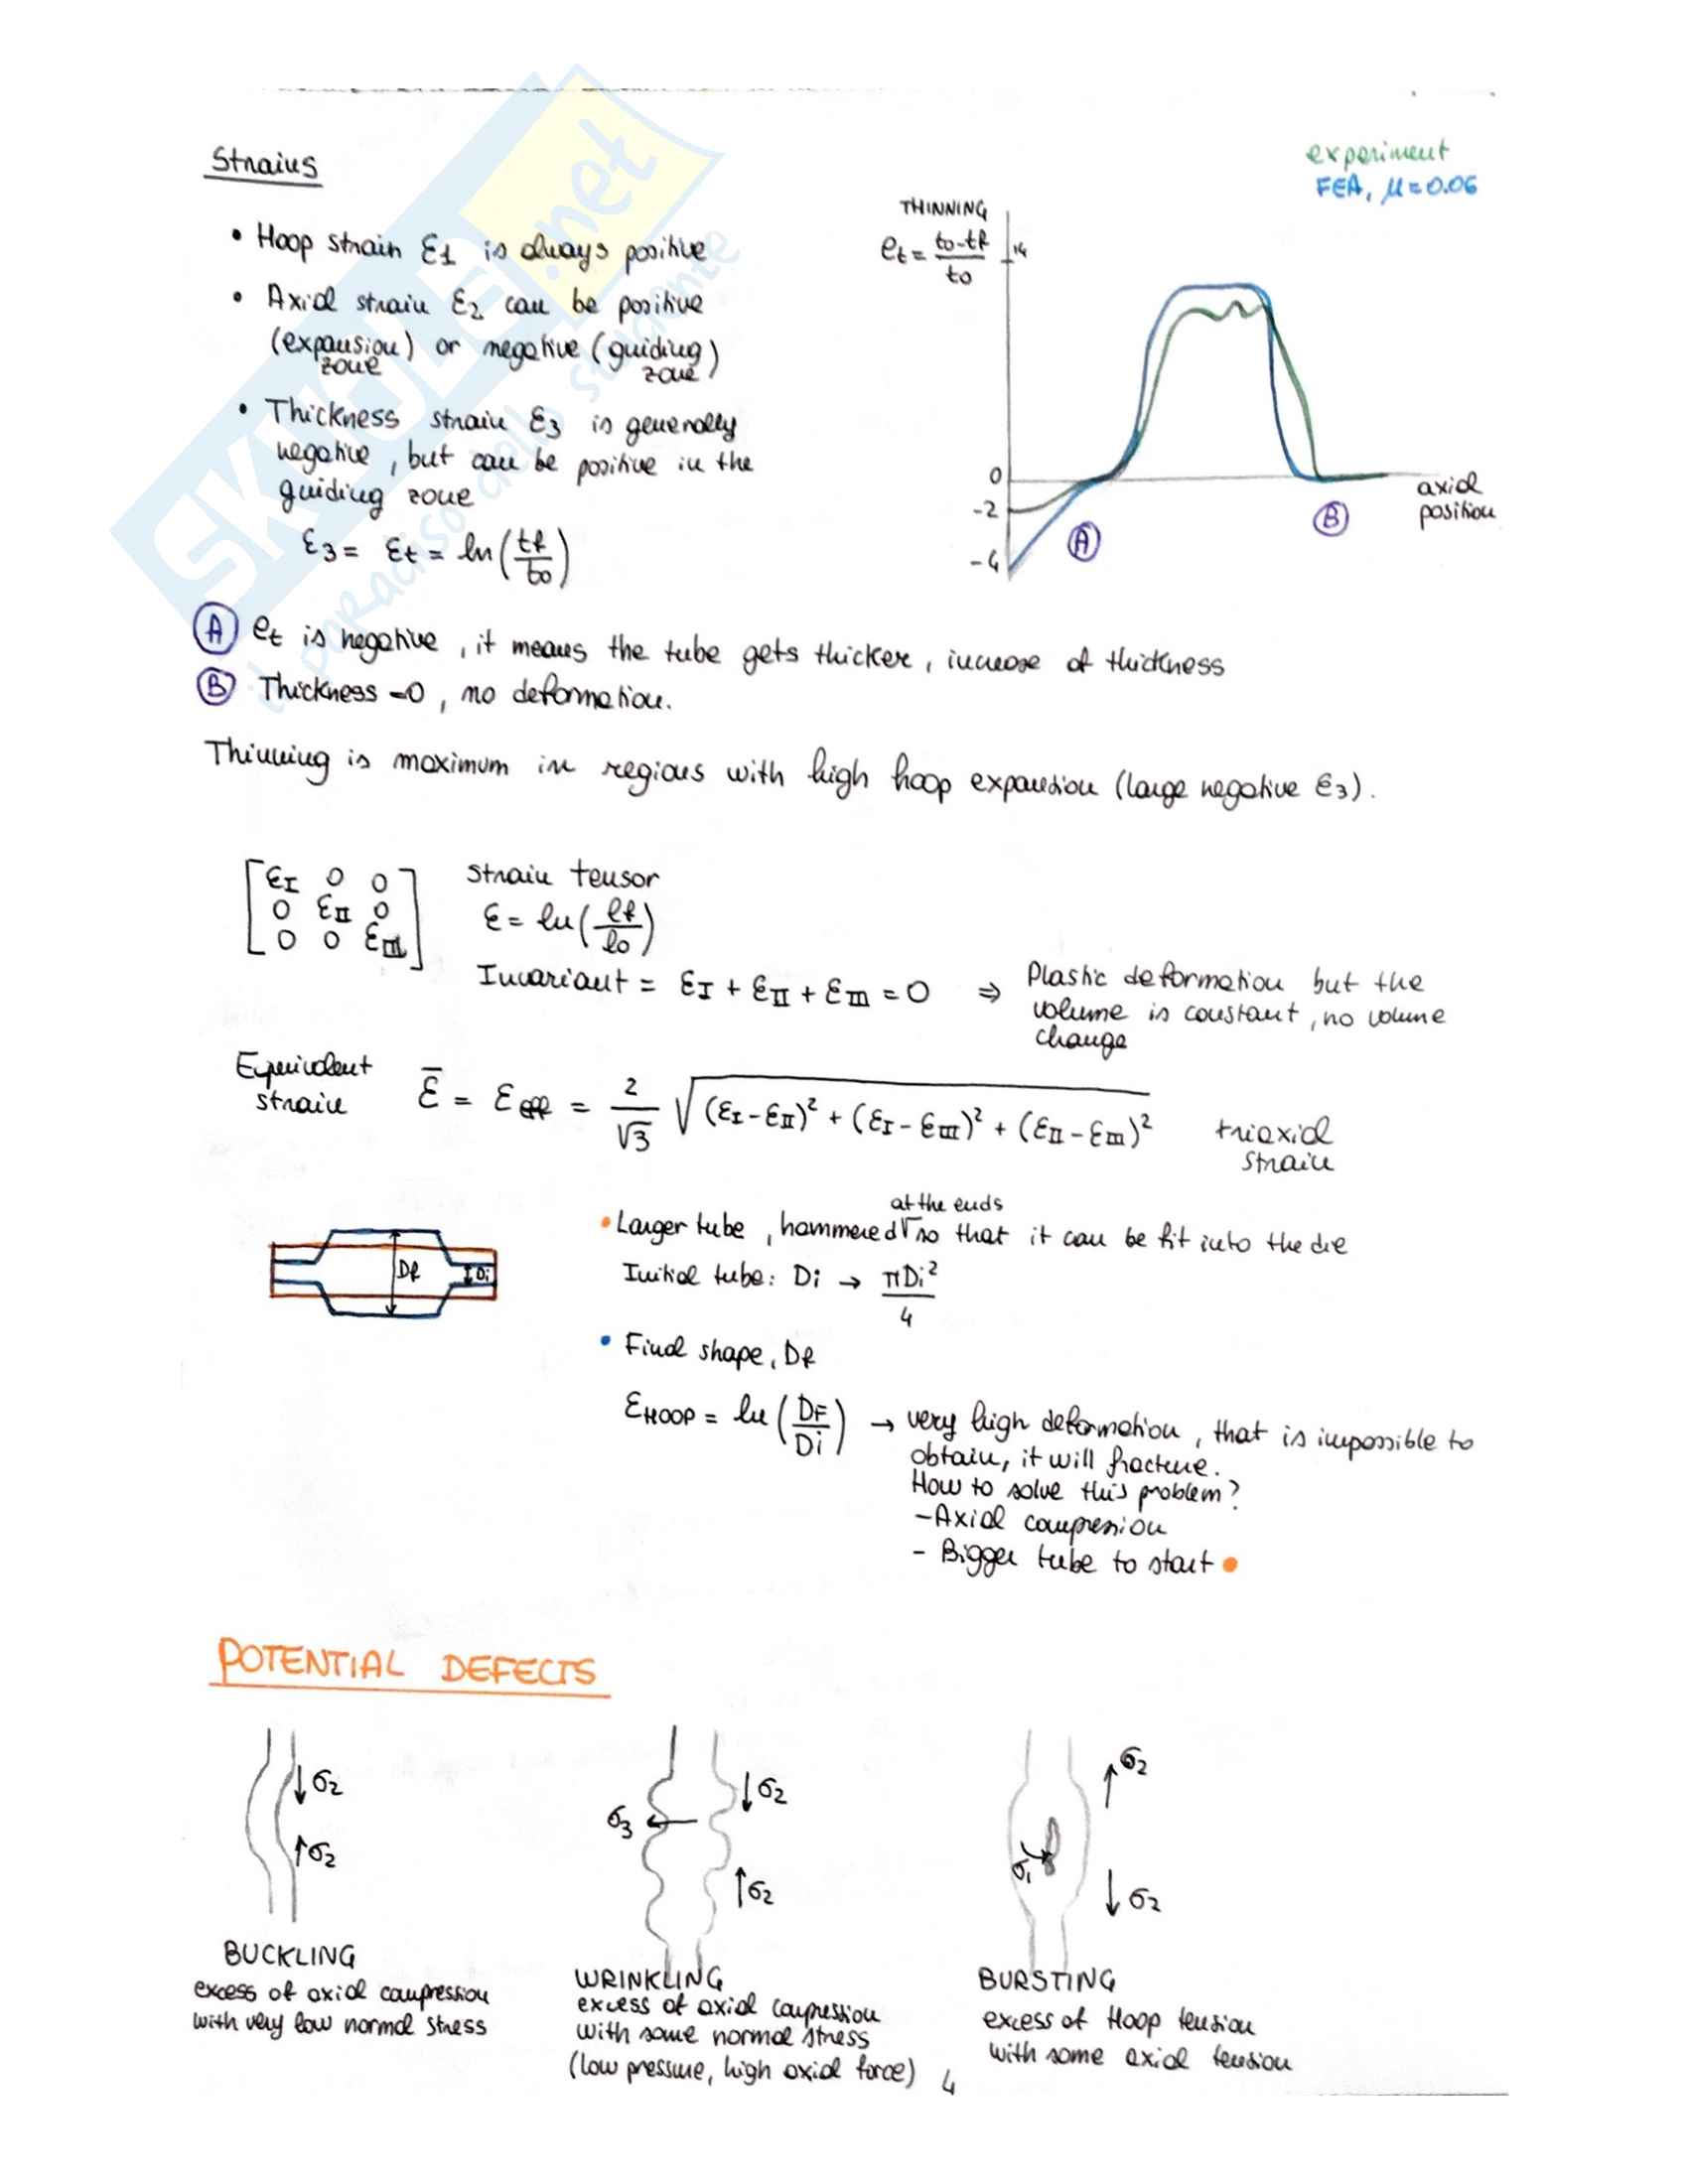 Strains
• Hoop strain ε1 is always positive
• Axial strain ε2 can be positive
(expansion) or negative (guiding)
zone zone
• Thickness strain ε3 is generally
negative, but can be positive in the
guiding zone
ε3 = εt = ln(tf/t0)
experiment
FEA, μ=0.06
THINNING
et = (t0-tf)/t0
14
0
-2
-4
A
B
axial
position
A et is negative, it means the tube gets thicker, increase of thickness
B Thickness =0, no deformation.
Thinning is maximum in regions with high hoop expansion (large negative ε3).
[εI 0 0
0 εII 0
0 0 εIII]
strain tensor
ε = ln(lf/l0)
Invariant = εI + εII + εIII = 0 ⇒ Plastic deformation but the
volume is constant, no volume
change
Equivalent
strain
ε̅ = εeff = 2/√3 √((εI-εII)² + (εI-εIII)² + (εII-εIII)²)
triaxial
strain
Df
Di
at the ends
• Larger tube, hammered √ so that it can be fit into the die
Initial tube: Di → πDi²/4
• Final shape, Df
εHOOP = ln(DF/Di) → very high deformation, that is impossible to
obtain, it will fracture.
How to solve this problem?
- Axial compression
- Bigger tube to start •
POTENTIAL DEFECTS
↓σ2
↑σ2
BUCKLING
excess of axial compression
with very low normal stress
σ3
↓σ2
↑σ2
WRINKLING
excess of axial compression
with some normal stress
(low pressure, high axial force)
↑σ2
σ1
↓σ2
BURSTING
excess of Hoop tension
with some axial tension
4
SKUOLA.net
il paradiso dello studente